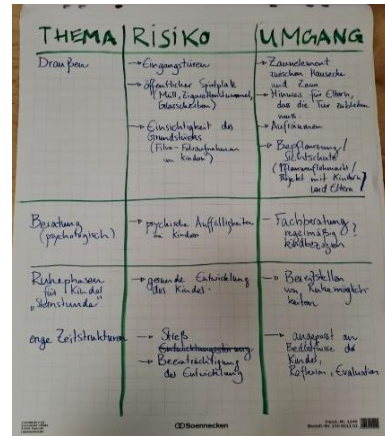 THEMA
RISIKO
UMGANG
Draußen
→ Eingangstüren
→ öffentlicher Spielplatz
(Müll, Zigarettenstummel,
Glasscheiben)
→ Einsichtigkeit des
Grundstücks
(Film- Fotoaufnahmen
von Kindern)
→ Zaunelement
zwischen Hausecke
und Zaun
→ Hinweis für Eltern,
dass die Tür
muss.
→ Aufräumen
→ Bepflanzung/
Sichtschutz
(Pflanzenflohmarkt/
Projekt mit Kindern
und Eltern)
Beratung
(psychologisch)
→ psychische Auffälligkeiten
Kindern
- Fachberatung
regelmäßig?
kindbezogen
Ruhephasen
für Kinder
"Sternstunde"
→ gesunde Entwicklung
des Kindes
→ Bereitstellen
von Ruhemöglich-
keiten
enge Zeitstrukturen
→ Streß
→ Beeinträchtigung
der Entwicklung
→ angepasst an
Bedürfnisse des
Kindes,
Reflexion, Evaluation
Soennecken